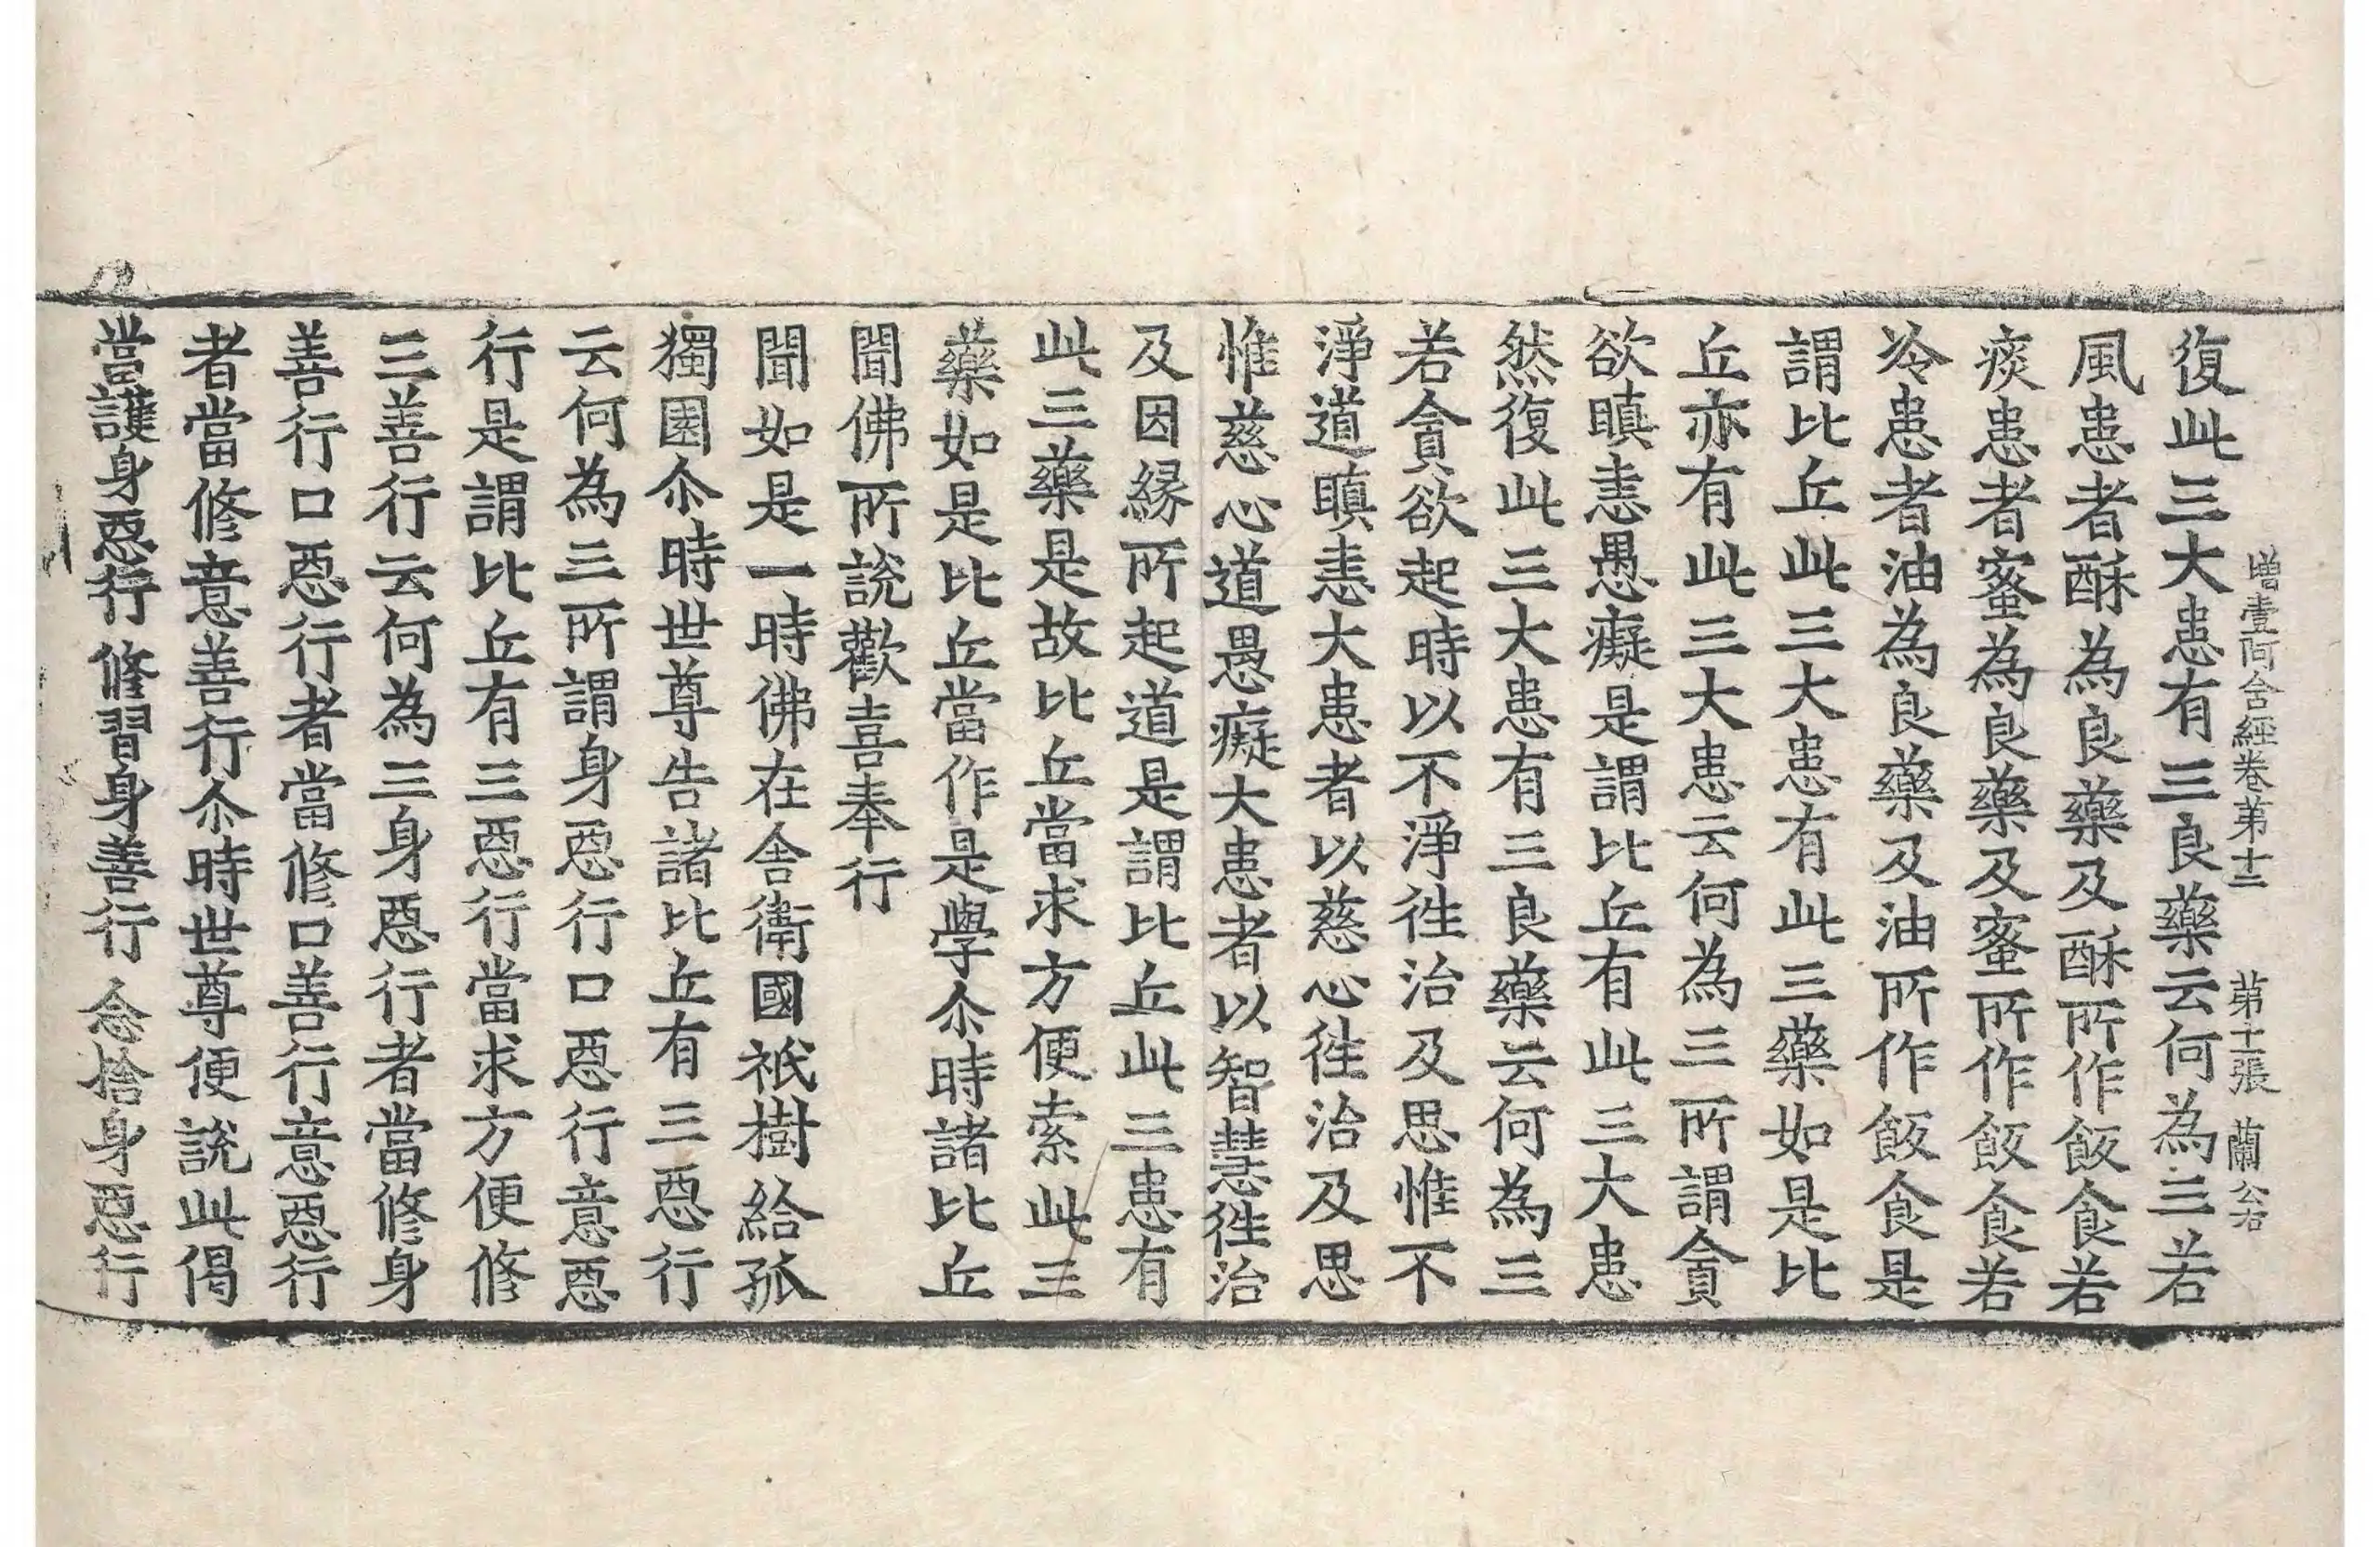 增壹阿含經卷第十二 第十一張 蘭 公右
復此三大患有三良藥云何為三若
風患者酥為良藥及酥所作飯食若
痰患者蜜為良藥及蜜所作飯食若
冷患者油為良藥及油所作飯食是
謂比丘此三大患有此三藥如是比
丘亦有此三大患云何為三所謂貪
欲瞋恚愚癡是謂比丘有此三大患
然復此三大患有三良藥云何為三
若貪欲起時以不淨徃治及思惟不
淨道瞋恚大患者以慈心徃治及思
惟慈心道愚癡大患者以智慧徃治
及因緣所起道是謂比丘此三患有
此三藥是故比丘當求方便索此三
藥如是比丘當作是學尒時諸比丘
聞佛所說歡喜奉行
聞如是一時佛在舍衛國祇樹給孤
獨園尒時世尊告諸比丘有三惡行
云何為三所謂身惡行口惡行意惡
行是謂比丘有三惡行當求方便修
三善行云何為三身惡行者當修身
善行口惡行者當修口善行意惡行
者當修意善行尒時世尊便說此偈
當護身惡行 修習身善行 念捨身惡行